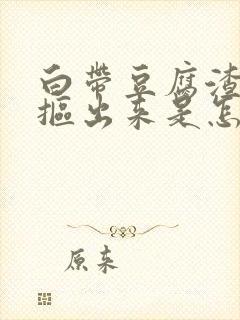 白带豆腐渣
抠出来是怎
原来